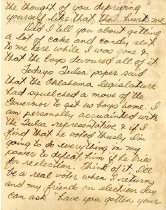 the thought of you depriving
yourself like that. That hurt me.
Did I tell you about getting
a lot of cake and candy sent
to me here while I was gone &
that the boys devoured all of it.
Todays Tulsa paper said
that the Oklahoma legislature
had squelched a move of the
Governor to get us boys home. I
am personally acquainted with
the Tulsa representative & if I
find that he voted thusly, I'm
going to do everything in my
power to defeat him if he runs
for reelection. Think of it. I'll
be a real voter when I return
and my friends on election day
can ask have you gotten your